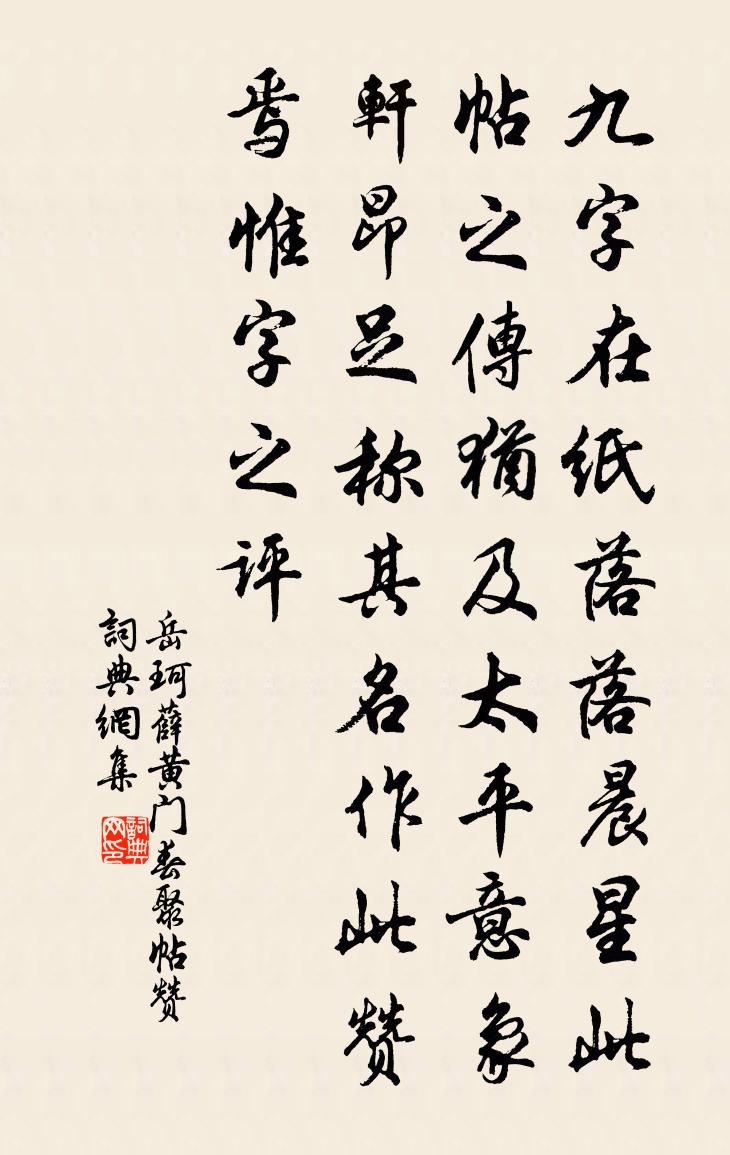 九字在紙落落晨星此
帖之傳猶及太平意象
軒昂足称其名作此赞
焉惟字之評
岳珂薛黄门春聚帖赞
詞典網集
詞典
网印